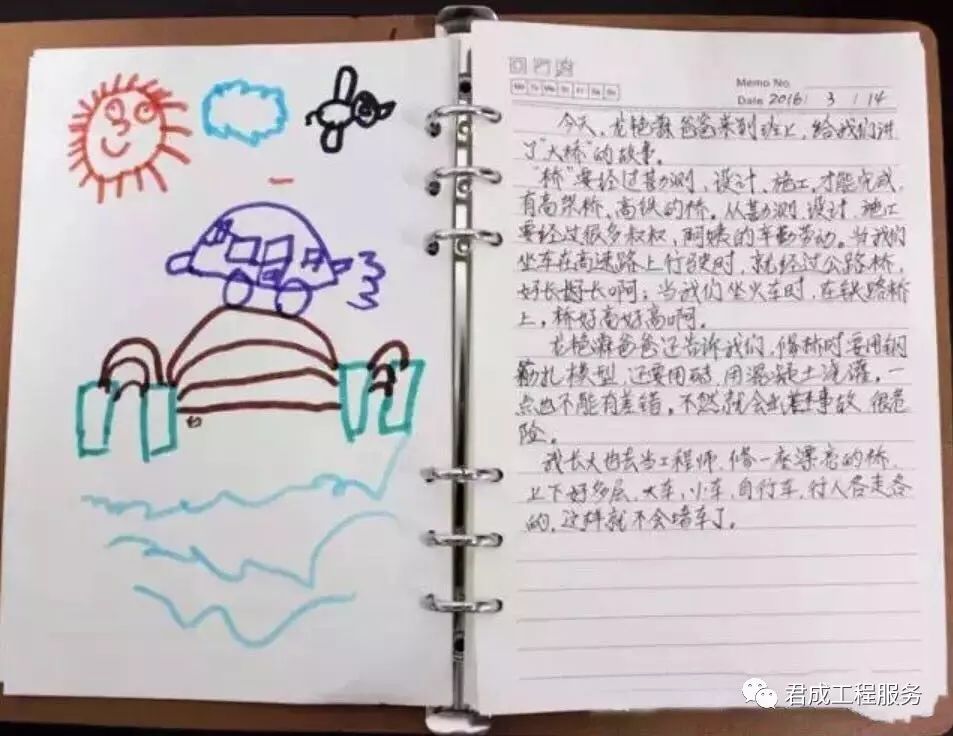 Memo No.
Mo Tu We Th Fr Sa Su
Date 2016 / 3 / 14
今天,龙艳霖爸爸来到班上,给我们讲
了"大桥"的故事。
"桥"要经过勘测、设计、施工,才能完成,
有高架桥、高铁的桥。从勘测、设计、施工
要经过很多叔叔,阿姨的辛勤劳动。当我们
坐车在高速路上行驶时,就经过公路桥,
好长好长啊;当我们坐火车时,在铁路桥
上,桥好高好高啊。
龙艳霖爸爸还告诉我们,修桥时要用钢
筋扎模型,还要用砖,用混凝土浇灌。一
点也不能有差错。不然就会出事故,很危
险。
我长大也去当工程师,修一座漂亮的桥,
上下好多层,大车,小车,自行车,行人各走各
的,这样就不会堵车了。
君成工程服务